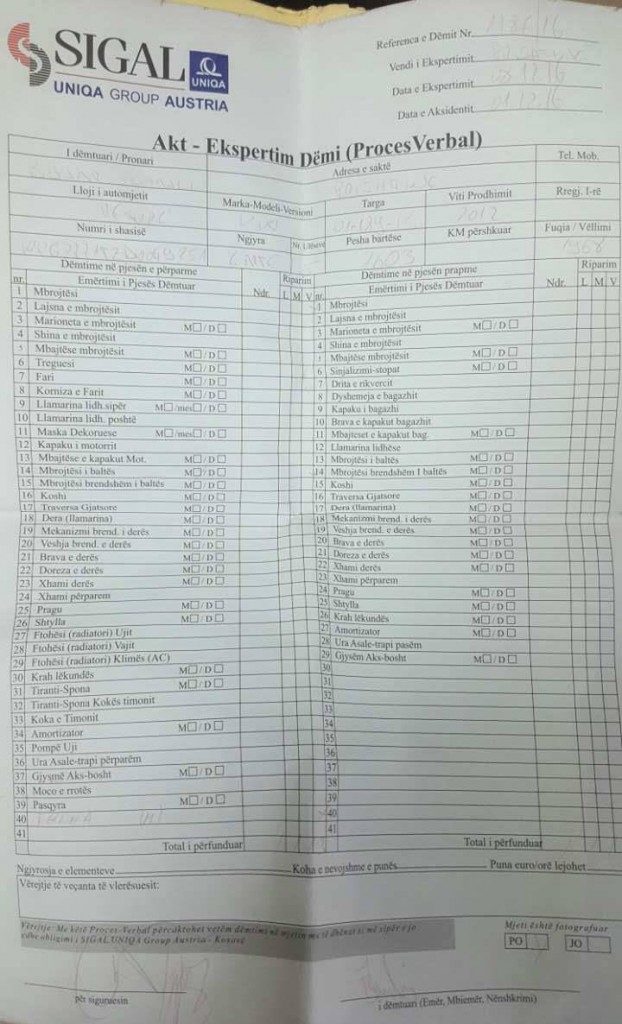 SIGAL
UNIQA
UNIQA GROUP AUSTRIA
Referenca e Dëmit Nr.
Vendi i Ekspertimit
Data e Ekspertimit
Data e Aksidentit
Akt - Ekspertim Dëmi (ProcesVerbal)
I dëmtuari / Pronari Adresa e saktë Tel. Mob.
Lloji i automjetit Marka-Modeli-Versioni Targa Viti Prodhimit Rregj. I-rë
2012
Numri i shasisë Ngjyra Pesha bartëse KM përshkuar Fuqia / Vëllimi
Dëmtime në pjesën e përparme Ndr. Riparim
nr. Emërtimi i Pjesës Dëmtuar L M V
1 Mbrojtësi
2 Lajsna e mbrojtësit
3 Marioneta e mbrojtësit M / D
4 Shina e mbrojtësit
5 Mbajtëse mbrojtësit M / D
6 Treguesi M / D
7 Fari M / D
8 Korniza e Farit M / D
9 Llamarina lidh.sipër M /mes / D
10 Llamarina lidh. poshtë
11 Maska Dekoruese M /mes / D
12 Kapaku i motorrit
13 Mbajtëse e kapakut Mot. M / D
14 Mbrojtësi i baltës M / D
15 Mbrojtësi brendshëm i baltës M / D
16 Koshi M / D
17 Traversa Gjatsore M / D
18 Dera (llamarina) M / D
19 Mekanizmi brend. i derës M / D
20 Veshja brend. e derës M / D
21 Brava e derës M / D
22 Doreza e derës M / D
23 Xhami derës M / D
24 Xhami përparem
25 Pragu M / D
26 Shtylla M / D
27 Ftohësi (radiatori) Ujit
28 Ftohësi (radiatori) Vajit
29 Ftohësi (radiatori) Klimës (AC)
30 Krah lëkundës M / D
31 Tiranti-Spona M / D
32 Tiranti-Spona Kokës timonit
33 Koka e Timonit
34 Amortizator M / D
35 Pompë Uji
36 Ura Asale-trapi përparëm
37 Gjysmë Aks-bosht M / D
38 Moco e rrotës
39 Pasqyra M / D
40
41
Total i përfunduar
Dëmtime në pjesën prapme Ndr. Riparim
nr. Emërtimi i Pjesës Dëmtuar L M V
1 Mbrojtësi
2 Lajsna e mbrojtësit
3 Marioneta e mbrojtësit M / D
4 Shina e mbrojtësit
5 Mbajtëse mbrojtësit M / D
6 Sinjalizimi-stopat M / D
7 Drita e rikvercit
8 Dyshemeja e bagazhit
9 Kapaku i bagazhi
10 Brava e kapakut bagazhit
11 Mbajteset e kapakut bag. M / D
12 Llamarina lidhëse
13 Mbrojtësi i baltës M / D
14 Mbrojtësi brendshëm I baltës M / D
15 Koshi M / D
16 Traversa Gjatsore M / D
17 Dera (llamarina) M / D
18 Mekanizmi brend. i derës M / D
19 Veshja brend. e derës M / D
20 Brava e derës M / D
21 Doreza e derës M / D
22 Xhami derës M / D
23 Xhami përparem
24 Pragu M / D
25 Shtylla M / D
26 Krah lëkundës M / D
27 Amortizator M / D
28 Ura Asale-trapi pasëm
29 Gjysëm Aks-bosht M / D
30
31
32
33
34
35
36
37
38
39
40
41
Total i përfunduar
Ngjyrosja e elementeve Koha e nevojshme e punës Puna euro/orë lejohet
Vërejtje të veçanta të vlerësuesit:
Vërejtje: Me këtë Proces-Verbal përcaktohet vetëm dëmtimi në mjetin me të dhënat si më sipër e jo
edhe obligimi i SIGAL UNIQA Group Austria - Kosovë
Mjeti është fotografuar
PO JO
për siguruesin i dëmtuari (Emër, Mbiemër, Nënshkrimi)